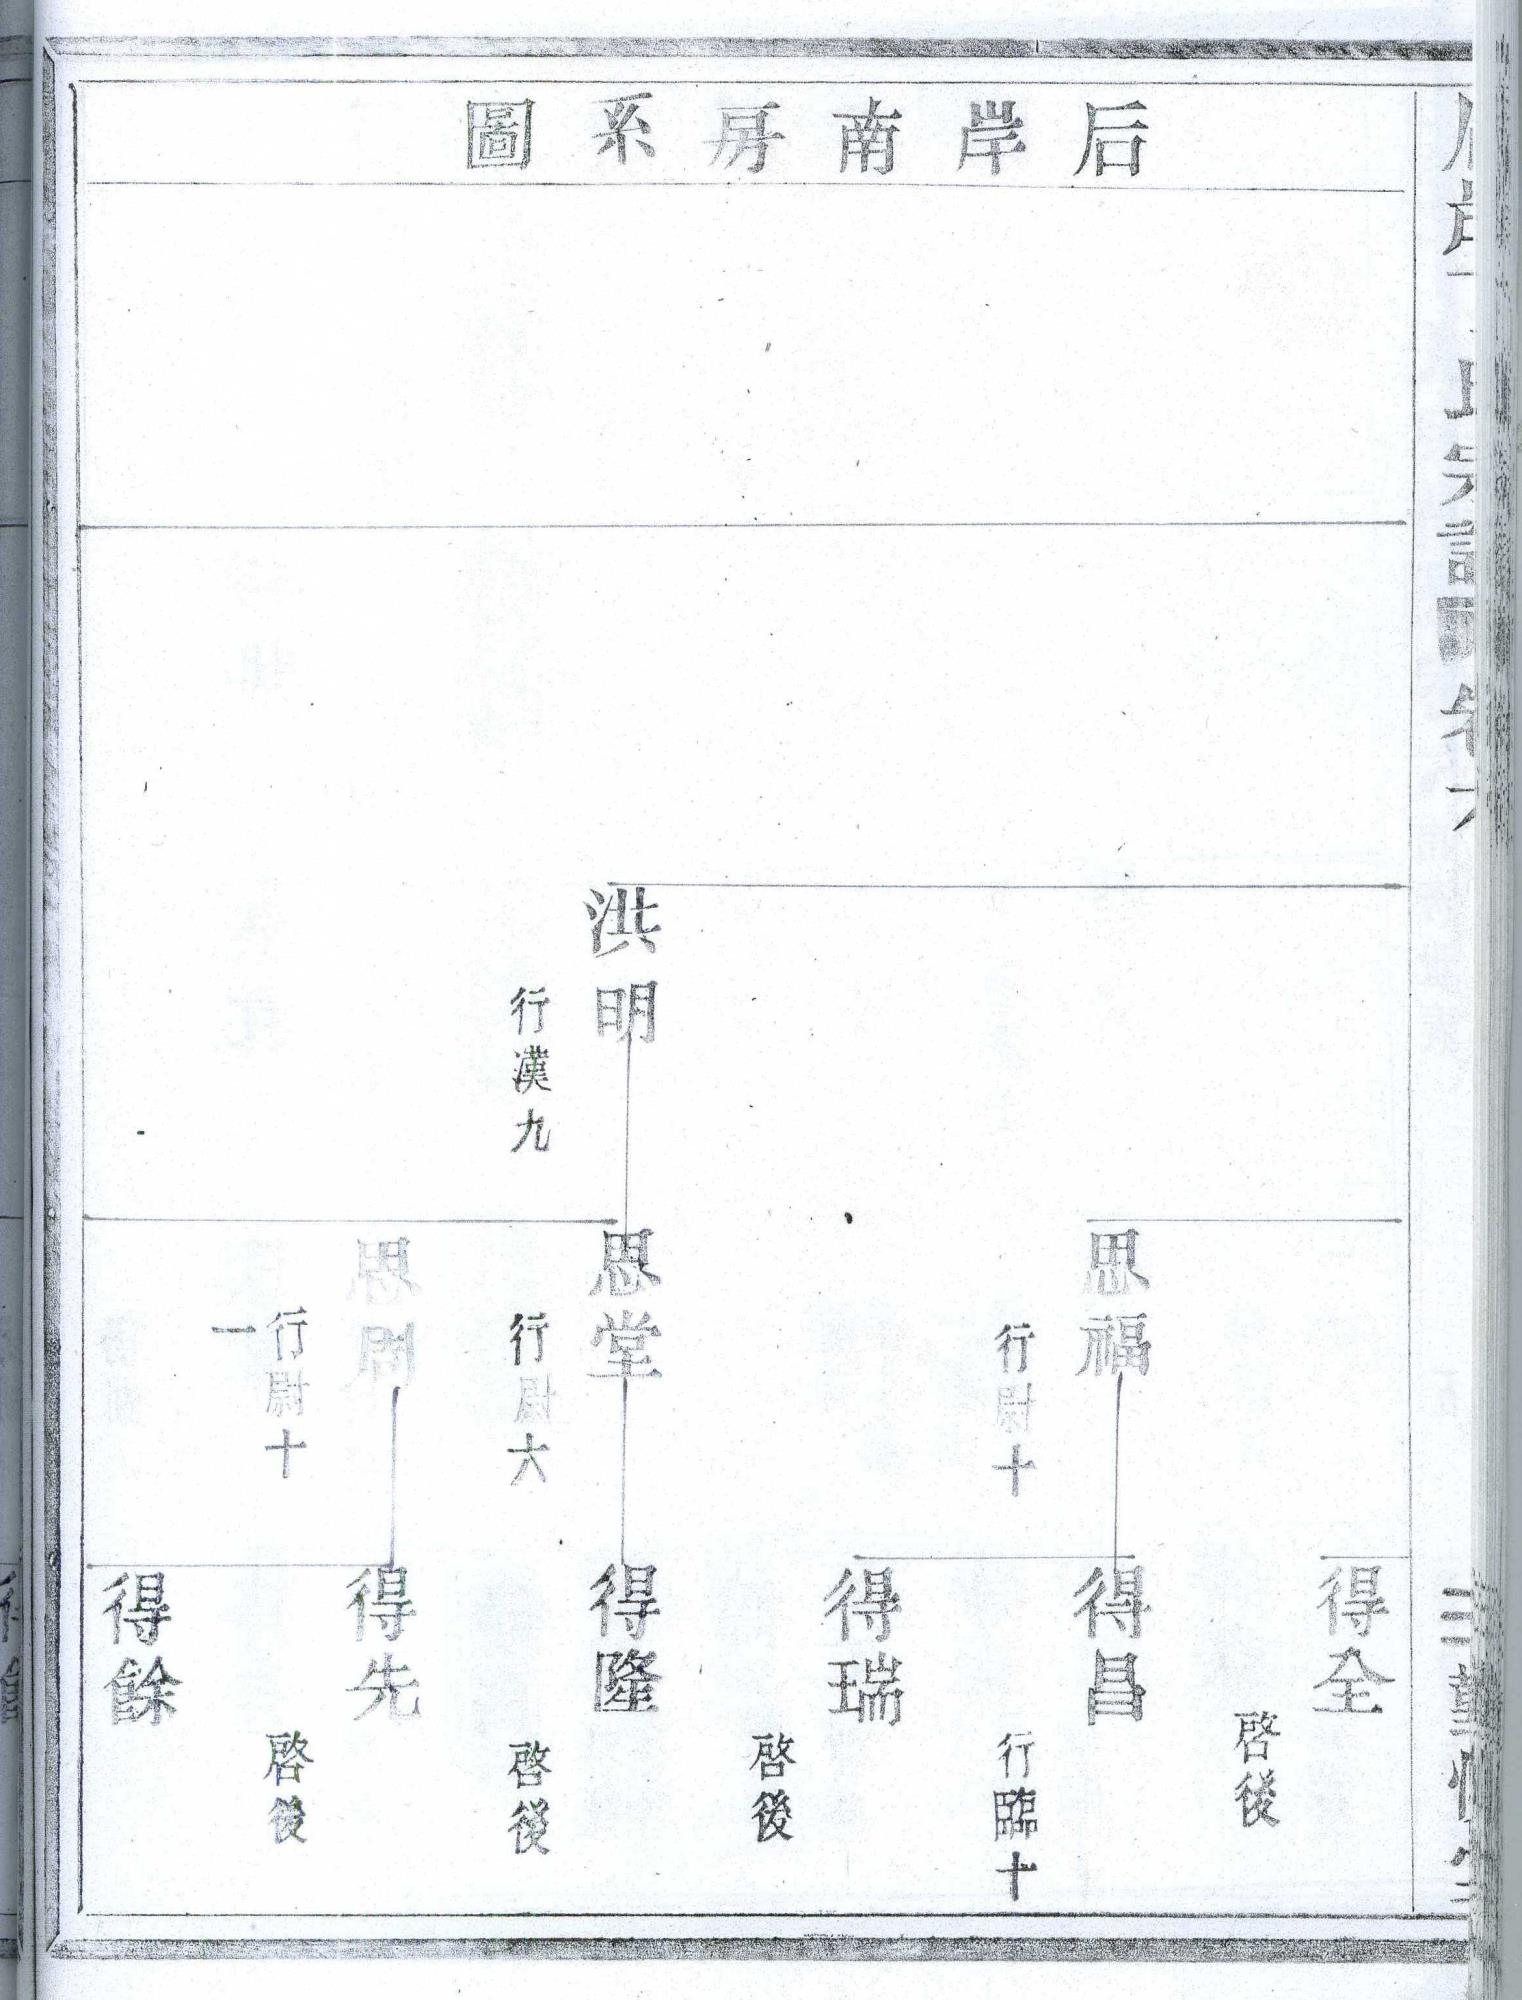 后岸南房系圖
洪明
行漢九
思福
行尉十
思堂
行尉六
思
行尉十一
得全
啓後
得昌
行臨十
得瑞
啓後
得隆
啓後
得先
啓後
得餘